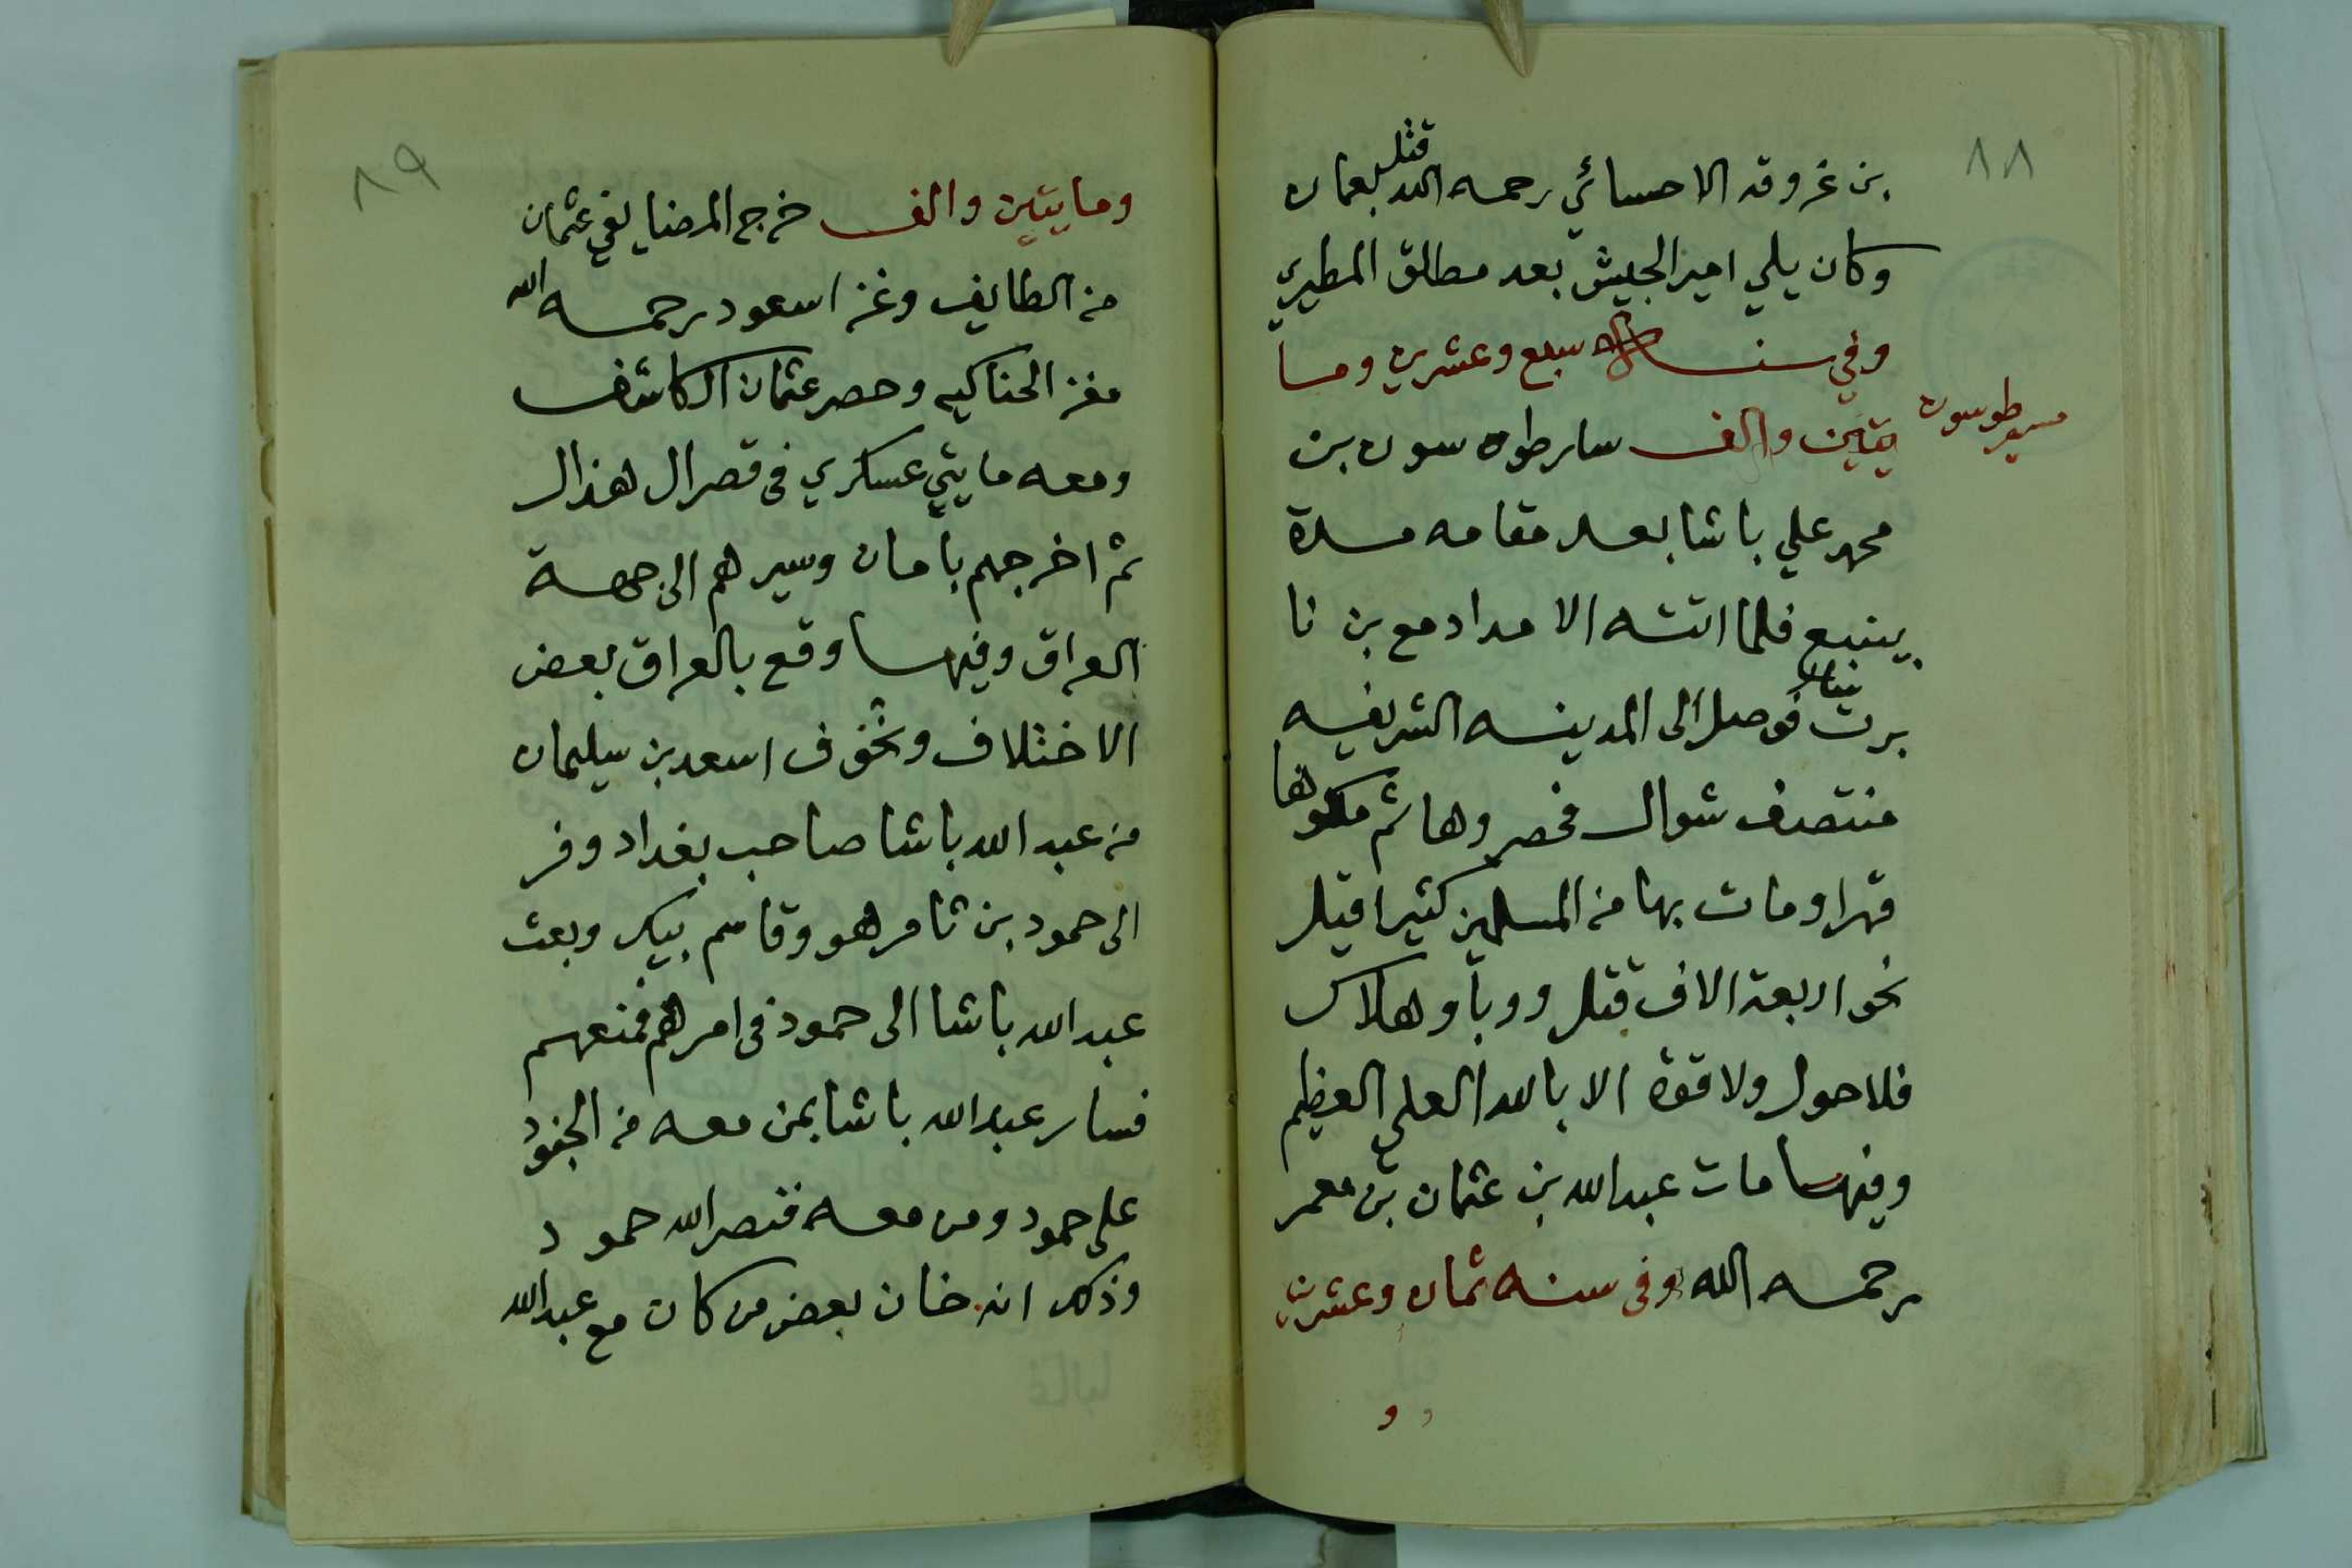 ٨٨
بن غروقه الاحسائي رحمه الله قتل بعمان
وكان يلي امير الجيش بعد مطلق المطيري
وفي سنة سبع وعشرين وما
يتين والف سار طوسون بن
مسير طوسون
محمد علي باشا بعد مقامه مدة
بينبع فلما اتته الامداد مع بن نا
برت فوصل الى المدينه الشريفه
منتصف شوال فحصروها ثم ملكوها
قهرا ومات بها من المسلمين كثيرا قيل
نحو اربعة الاف قتل ووبا وهلاك
فلا حول ولا قوة الا بالله العلي العظيم
وفيها مات عبدالله بن عثمان بن معمر
رحمه الله وفي سنه ثمان وعشرين
و
٨٩
ومايتين والف خرج المضايفي عثمان
من الطايف وغزا سعود رحمه الله
مغز الحناكيه وحصر عثمان الكاشف
ومعه مايتي عسكري في قصر ال هذال
ثم اخرجهم بامان وسيرهم الى جهة
العراق وفيها وقع بالعراق بعض
الاختلاف وتخوف اسعد بن سيلمان
من عبد الله باشا صاحب بغداد وفر
الى حمود بن ثامر هو وقاسم بيك وبعث
عبد الله باشا الى حمود في امرهم فمنعهم
فسار عبد الله باشا بمن معه من الجنود
على حمود ومن معه فنصر الله حمود
وذلك انه خان بعض من كان مع عبدالله